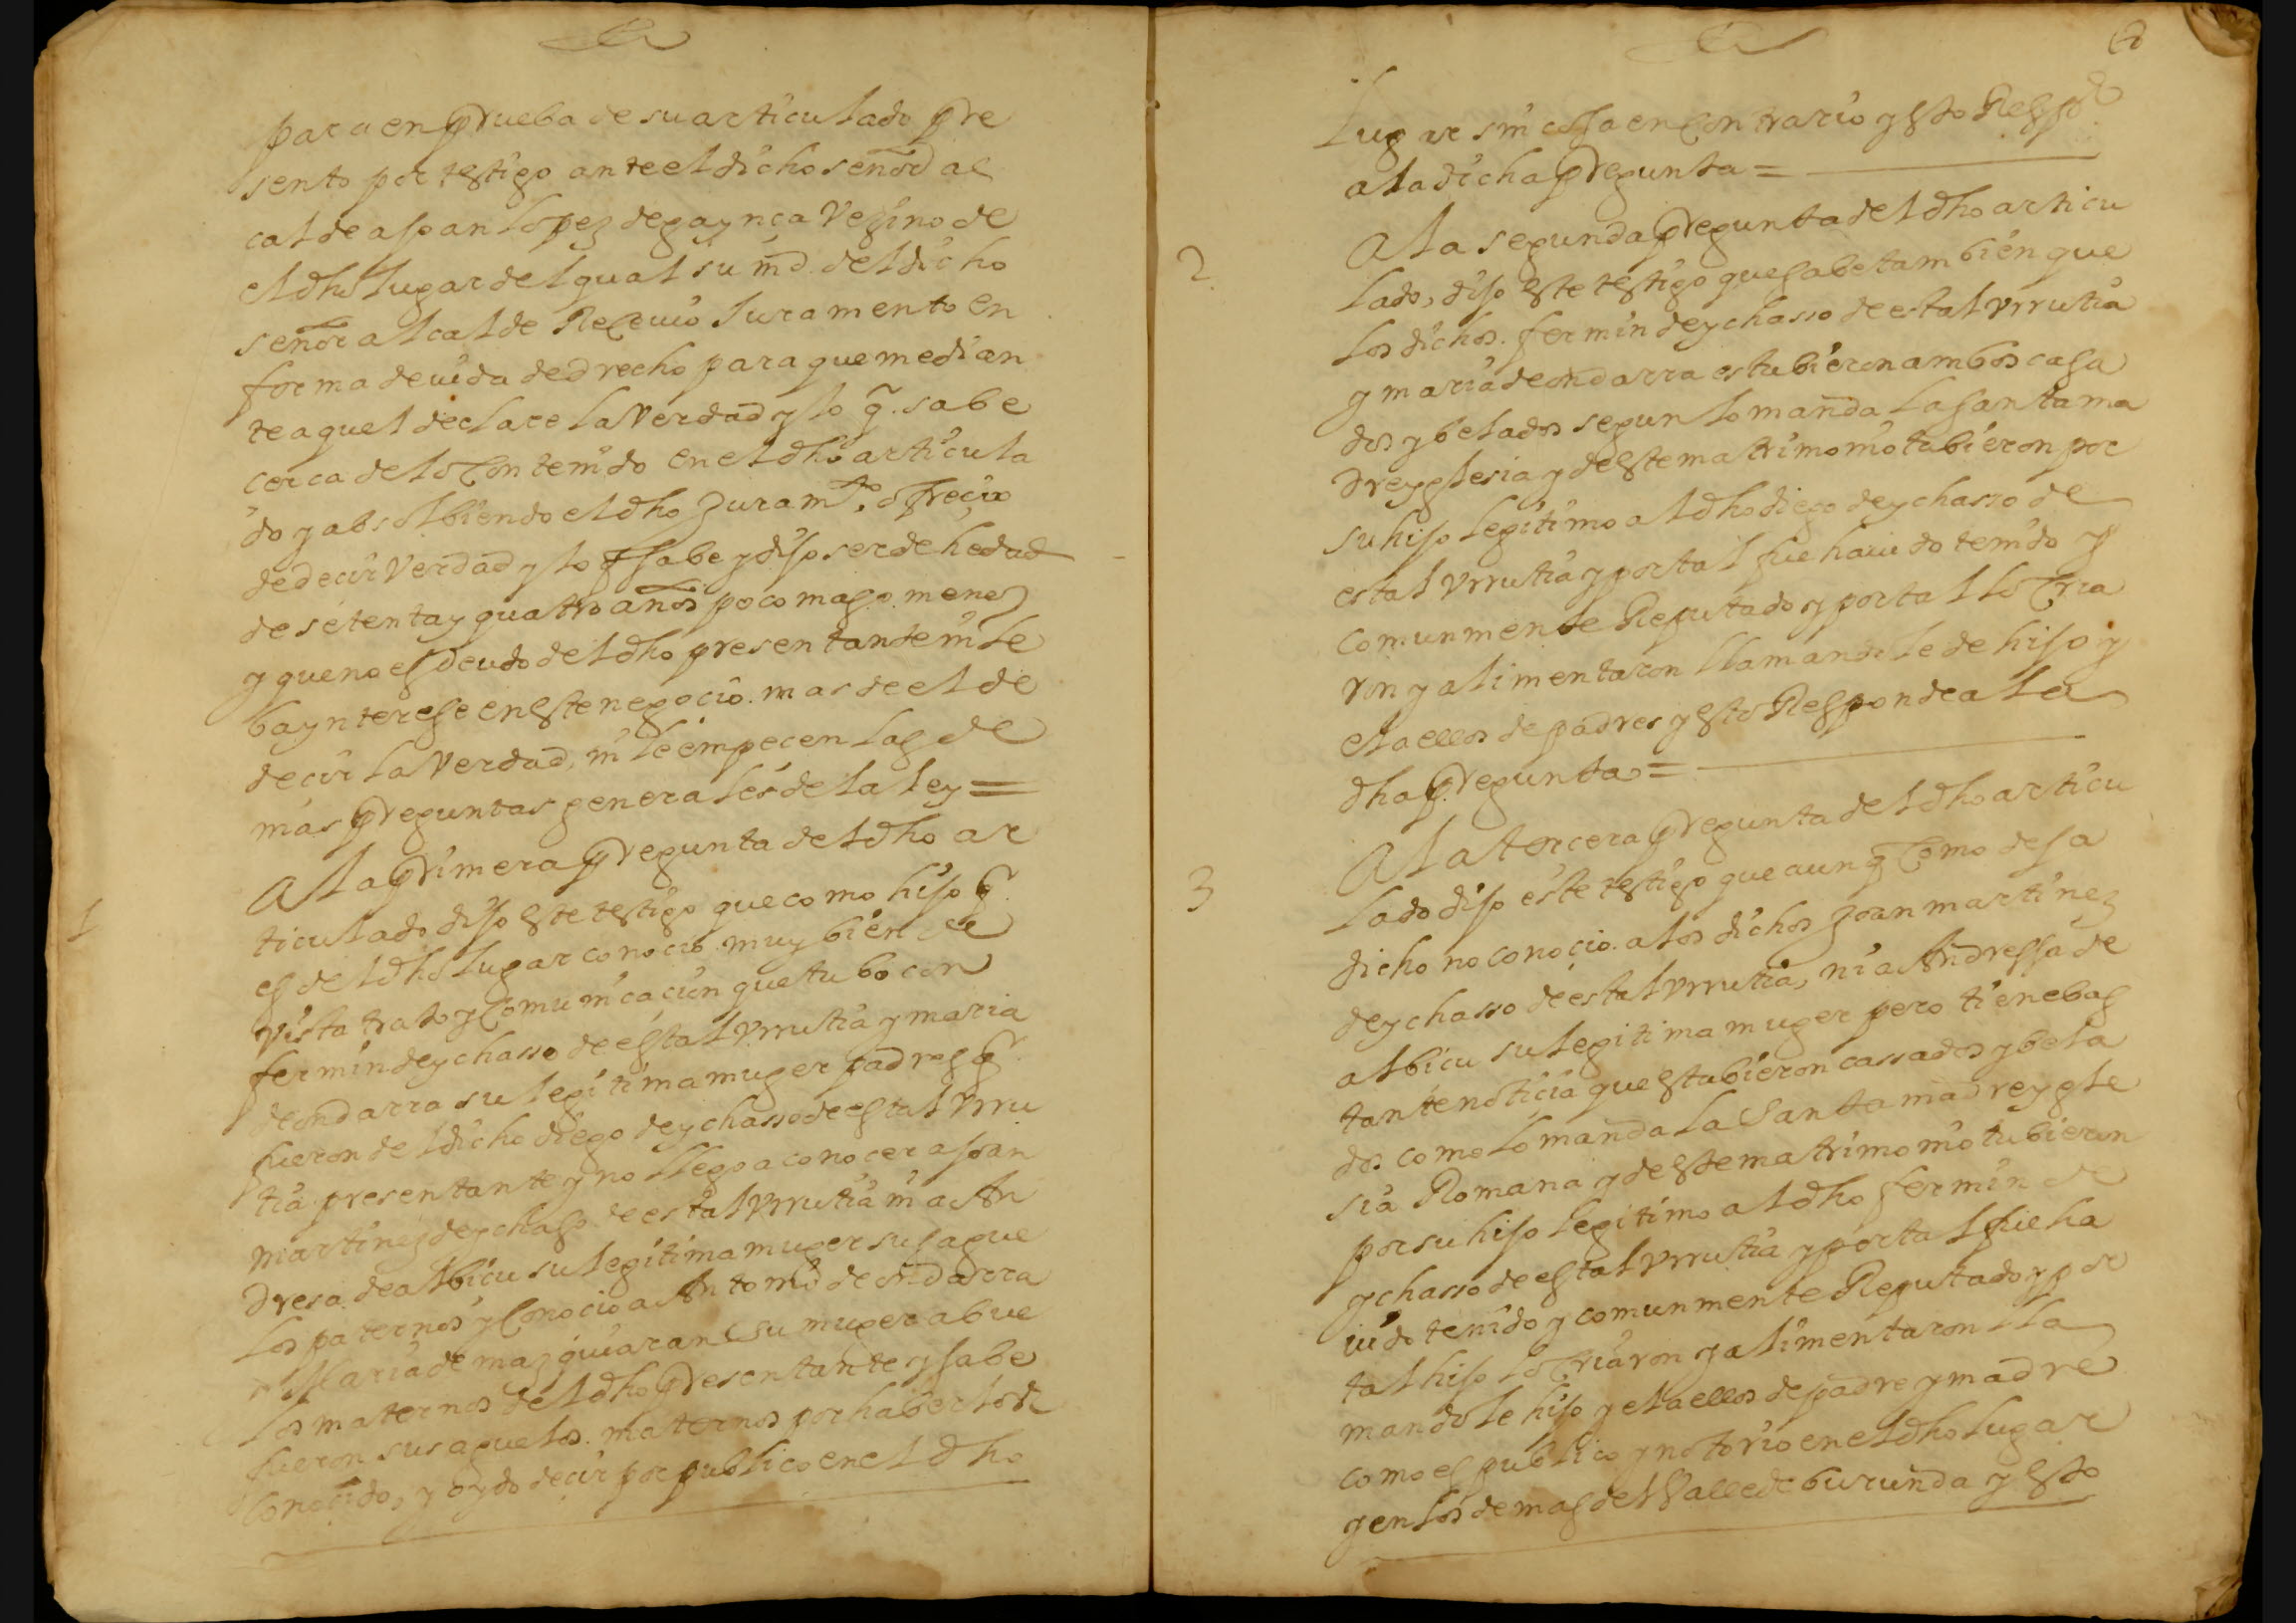 para en prueba de su articulado pre
sento por testigo ante el dicho señor al
calde a Joan Lopez de gaynça Vezino de
el dho lugar del qual su md. del dicho
señor alcalde Recevio Juramento en
forma devida de drecho para que median
te aquel declare la Verdad y lo q. sabe
cerca de lo Contenido en el dho articula
do y absolbiendo el dho Juramto. ofreçio
de decir Verdad y lo q sabe y dijo ser de hedad
de setenta y quatro años poco mas o menos
y que no es deudo del dho presentante ni le
ba ynterese en este negocio mas de el de
decir la Verdad, ni le empecen las de
mas preguntas generales de la ley =
1
A la Primera pregunta del dho ar
ticulado dijo este testigo que como hijo q.
es del dho lugar conocio muy bien de
vista trato y Comunicacion que tubo con
fermin de ychasso de estal Vrrutia y maria
de ondarra su legitima muger padres q.
fueron del dicho diego de ychasso de estal Vrru
tia presentante y no llego a conocer a Joan
martinez de ychaso de estal Vrrutia ni a An
dresa de albicu su legitima muger sus ague
los paternos y Conocio a Antonio de ondarra
y Maria de mazquiaran su muger abue
los maternos del dho presentante y sabe
fueron sus aguelos maternos por haberlos
Conocido, y oydo decir por publico en el dho
lugar sin cossa en Contrario y esto Respde
a la dicha pregunta =
2
A la segunda pregunta del dho articu
lado, dijo este testigo que sabe tambien que
los dichos fermin de ychasso de estal Vrrutia
y maria de ondarra estubieron ambos casa
dos y belados segun lo manda la santa ma
dre yglesia y de este matrimonio tubieron por
su hijo legitimo al dho diego de ychasso de
estal Vrrutia y por tal fue havido tenido y
comunmente Reputado y por tal lo Cria
ron y alimentaron llamandole de hijo y
el a ellos de padres y esto Responde a la
dha pregunta =
3
A la tercera pregunta del dho articu
lado dijo este testigo que aunq Como de sa
dicho no conoçio a los dichos Joan martinez
de ychasso de estal Vrrutia, ni a Andressa de
albicu su legitima muger pero tiene bas
tante noticia que estubieron cassados y bela
dos como lo manda la Santa madre ygle
sia Romana y de este matrimonio tubieron
por su hijo legitimo al dho fermin de
ychasso de estal Vrrutia y por tal fue ha
vido tenido y comunmente Reputado y por
tal hijo lo Criaron y alimentaron lla
mandole hijo y el a ellos de padre y madre
como es publico y notorio en el dho lugar
y en los demas del Valle de burunda y esto